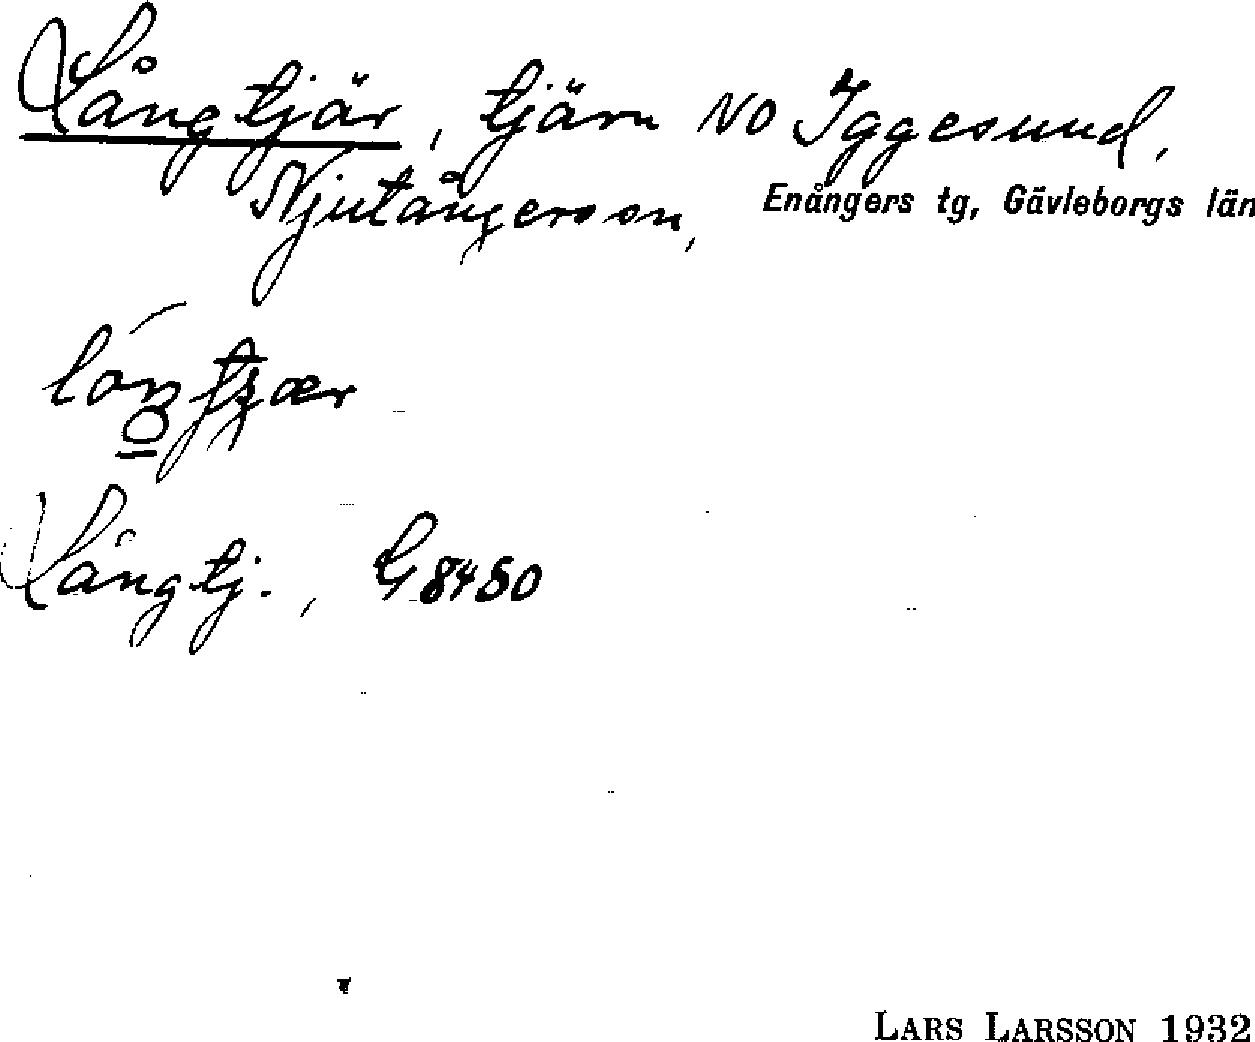 Långtjär, tjärn NO Iggesund,
Njutångers sn, Enångers tg, Gävleborgs län
Långtj., G 8450
LARS LARSSON 1932